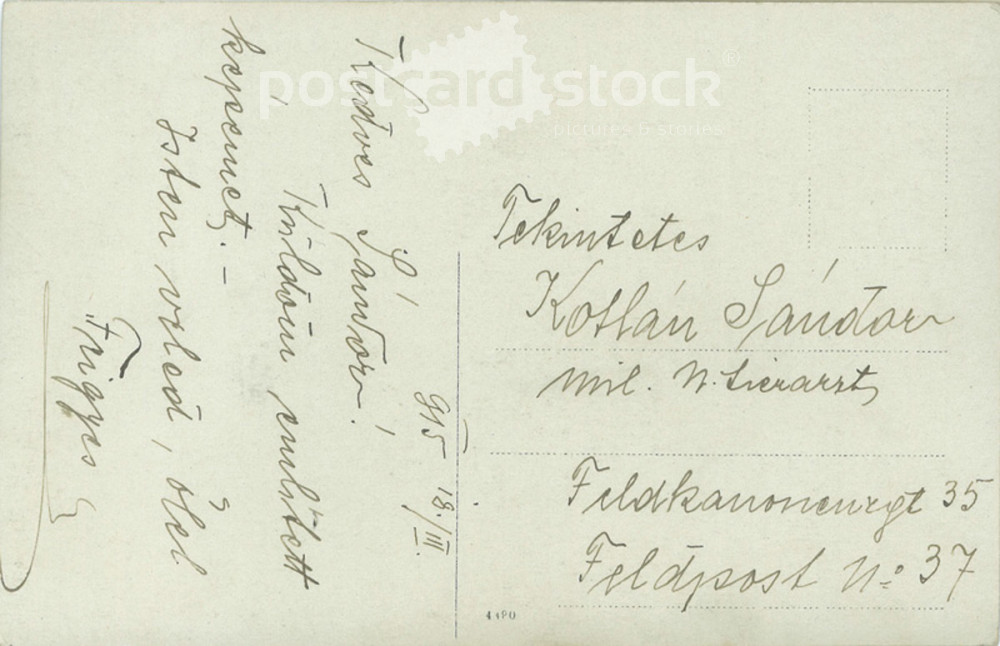 915 18/III.
Kedves Sándor!
Küldöm emlitett
képemet. –
Isten veled, ölel
Frigyes
Tekintetes
Kotlán Sándor
mil. U. tierarzt
Feldkanonenrgt 35
Feldpost No 37
44PO
postcard stock
pictures & stories